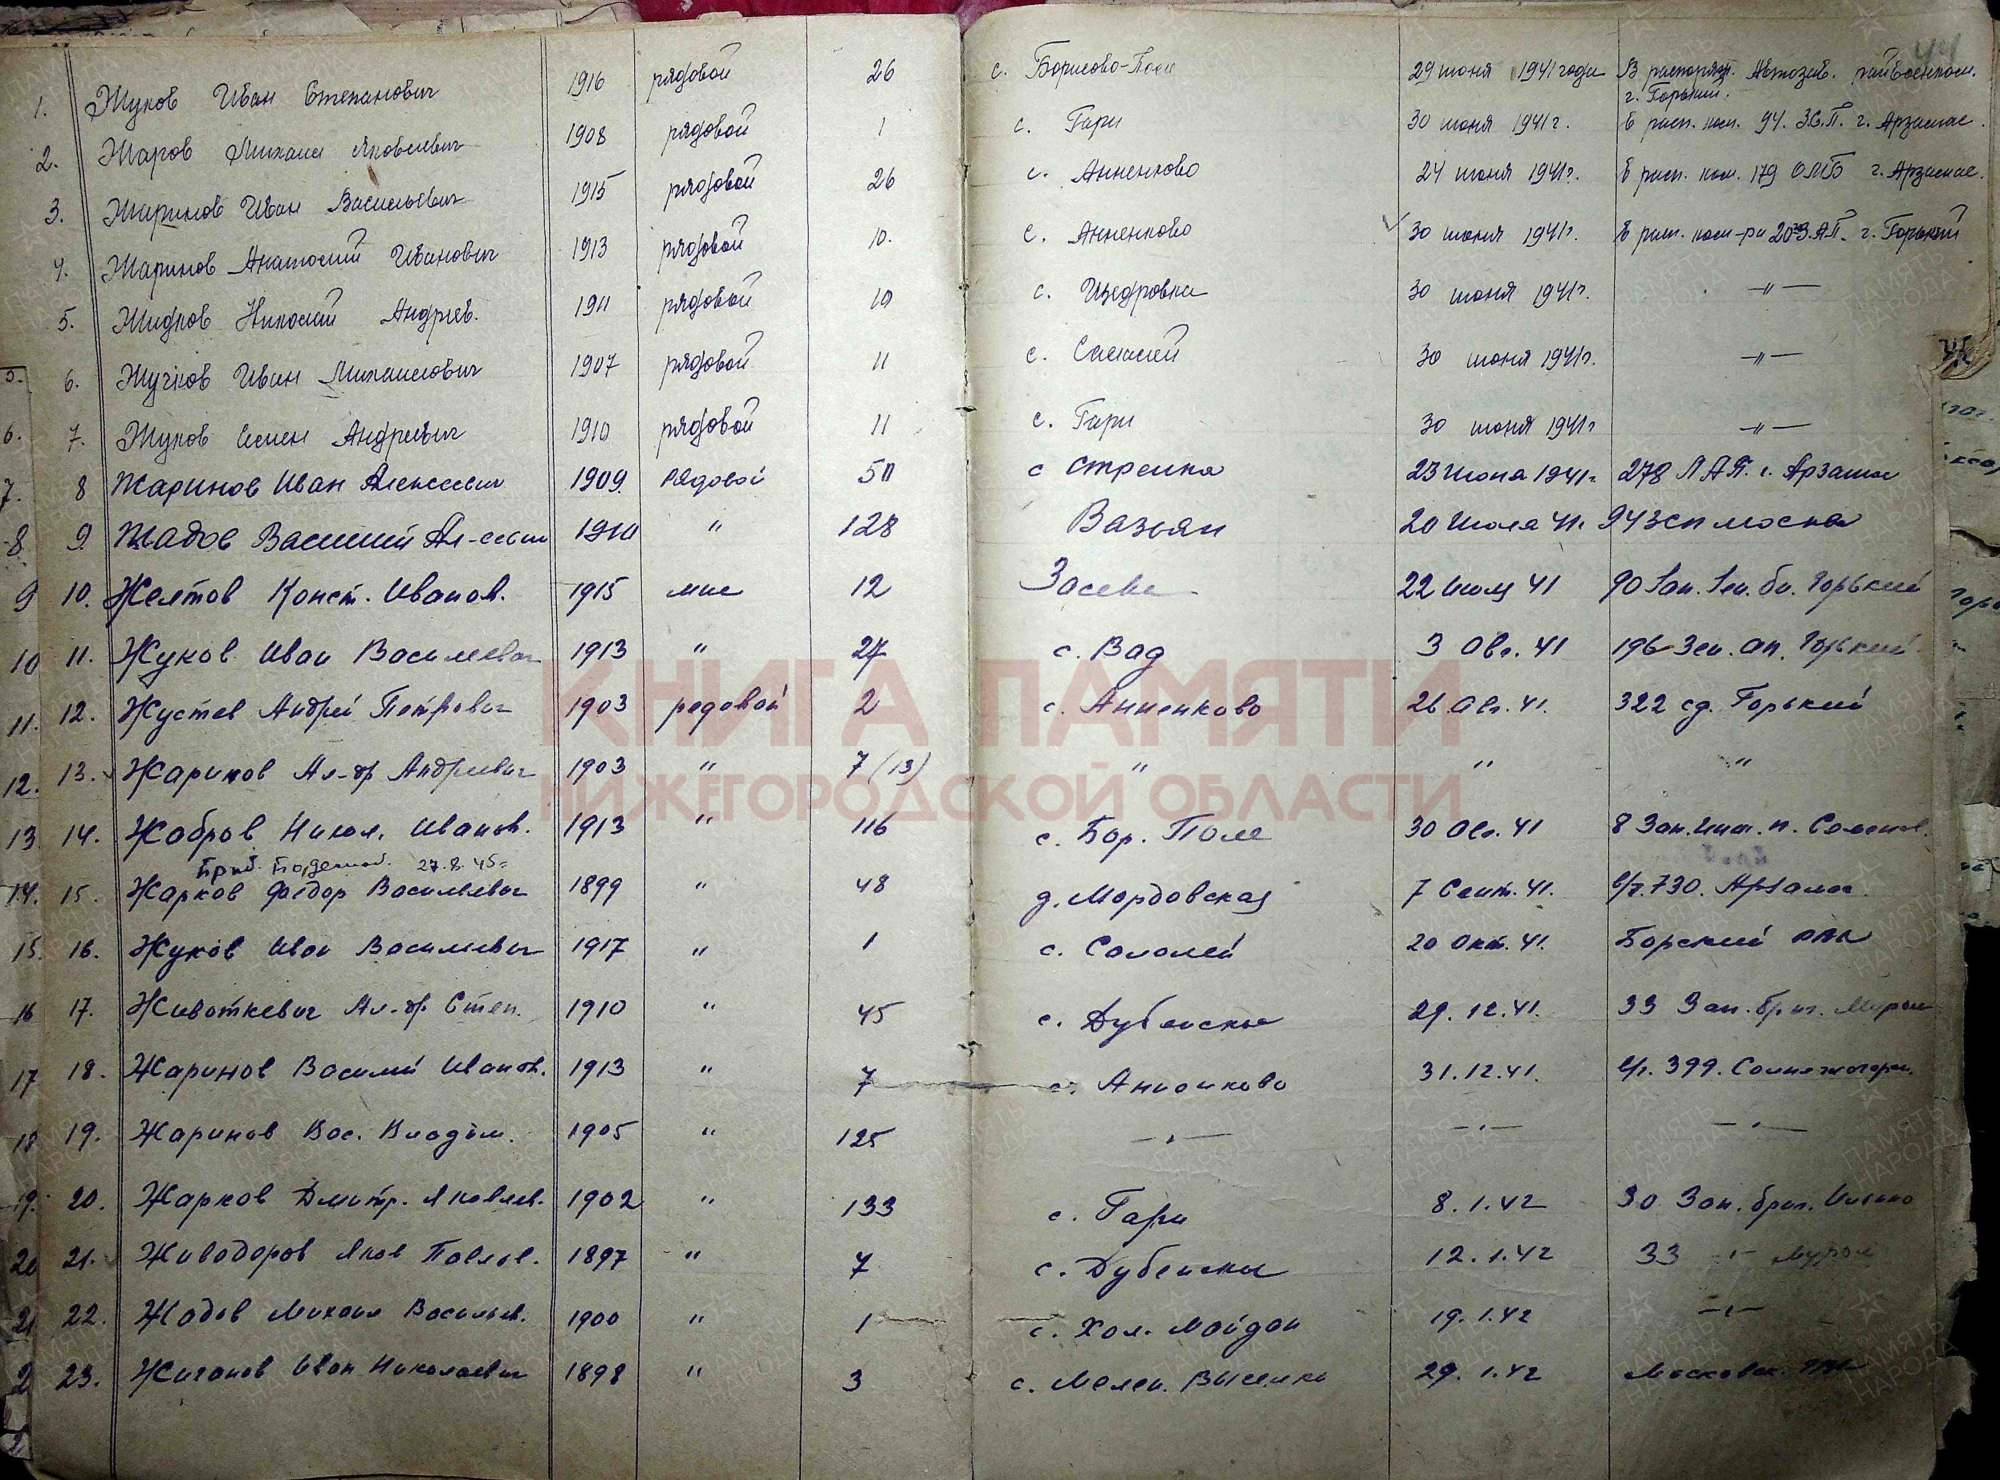 44
1. Жуков Иван Степанович 1916 рядовой 26 с. Борисово-Поле 29 июня 1941 года В распоряж. Автозав. райвоенком.
г. Горький.
2. Жаров Михаил Яковлевич 1908 рядовой 1 с. Гари 30 июня 1941 г. в расп. ком. 94. З.С.П. г. Арзамас.
3. Жаринов Иван Васильевич 1915 рядовой 26 с. Анненково 24 июня 1941 г. в расп. ком. 179 ОМБ г. Арзамас.
4. Жаринов Анатолий Иванович 1913 рядовой 10. с. Анненково 30 июня 1941 г. в расп. ком-ра З.А.П. г. Горький
5. Жидков Николай Андреев. 1911 рядовой 10 с. Щедровка 30 июня 1941 г. -"-
6. Жучков Иван Михайлович 1907 рядовой 11 с. 30 июня 1941 г. -"-
7. Жуков Семен Андреевич 1910 рядовой 11 с. Гари 30 июня 1941 г -"-
8 Жаринов Иван Алексеевич 1909. рядовой 50 с Стрелка 23 Июня 1941 г. 278 ЛАП. г. Арзамас
9. Жадов Василий Ал-севич 1910 " 128 Вазьян 20 Июля 41 г. 94 ЗСП Москва
10. Желтов Конст. Иванов. 1915 мнс 12 Засека 22 Июля 41 90 Зап. бн. Горький
11. Жуков Иван Васильевич 1913 " 27 с. Вад 3 Авг. 41 196 Зен. ап. Горький
12. Жустев Андрей Петрович 1903 редовой 2 с. Анненково 26. Авг. 41. 322 сд. Горький
13. Жаринов Ал-др Андреевич 1903 " 7 (13) " " "
14. Жабров Никол. Иванов. 1913 " 116 с. Бор. Поле 30 Авг. 41 8 Зап.
27.8.45 г
15. Жарков Федор Васильевич 1899 " 48 д. Мордовская 7 Сент. 41. в/ч. 730. Арзамас.
16. Жуков Иван Васильевич 1917 " 1 с. Салалей 20 Окт. 41. Борский
17. Животкевич Ал-др Степ. 1910 " 45 с. Дубенское 29. 12. 41. 33 Зап. бриг. Муром
18. Жаринов Василий Иванов. 1913 " 7 с. Анненково 31. 12. 41. в/ч. 399. Солнечногорск.
19. Жаринов Вас. Владим. 1905 " 125 -"- -"- -"-
20. Жарков Дмитр. Яковлев. 1902 " 133 с. Гари 8. 1. 42 30 Зап. бриг.
21. Живодоров Яков Павлов. 1897 " 7 с. Дубенское 12. 1. 42 33 -"- Муром
22. Жадов Михаил Васильев. 1900 " 1 с. Хол. Майдан 19. 1. 42 -"-
23. Жиганов Иван Николаевич 1898 " 3 с. Мелен. Выселки 29. 1. 42 Московск.
КНИГА ПАМЯТИ
НИЖЕГОРОДСКОЙ ОБЛАСТИ